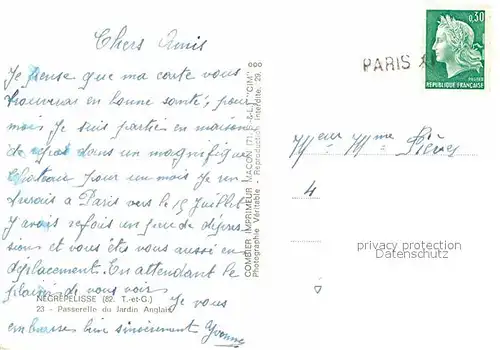 Chers Amis
Je pense que ma carte vous
trouveras en bonne santé, pour
moi Je suis partie en maison
de repos dans un magnifique
Chateau pour un mois Je ren-
trerais à Paris vers le 15 Juillet.
J'avais refais un peu de dépres-
sion et vous êtes vous aussi en
déplacement. En attendant le
plaisir de vous voir
Je vous
embrasse bien sincèrement Yvonne
NÈGREPELISSE (82. T.-et-G.)
23 - Passerelle du Jardin Anglais
COMBIER IMPRIMEUR MACON (71-S.-&-L.) "CIM"
Photographie Véritable - Reproduction interdite.
PARIS
0,30
POSTES
REPUBLIQUE FRANÇAISE
Meur Mme
4
privacy protection
Datenschutz